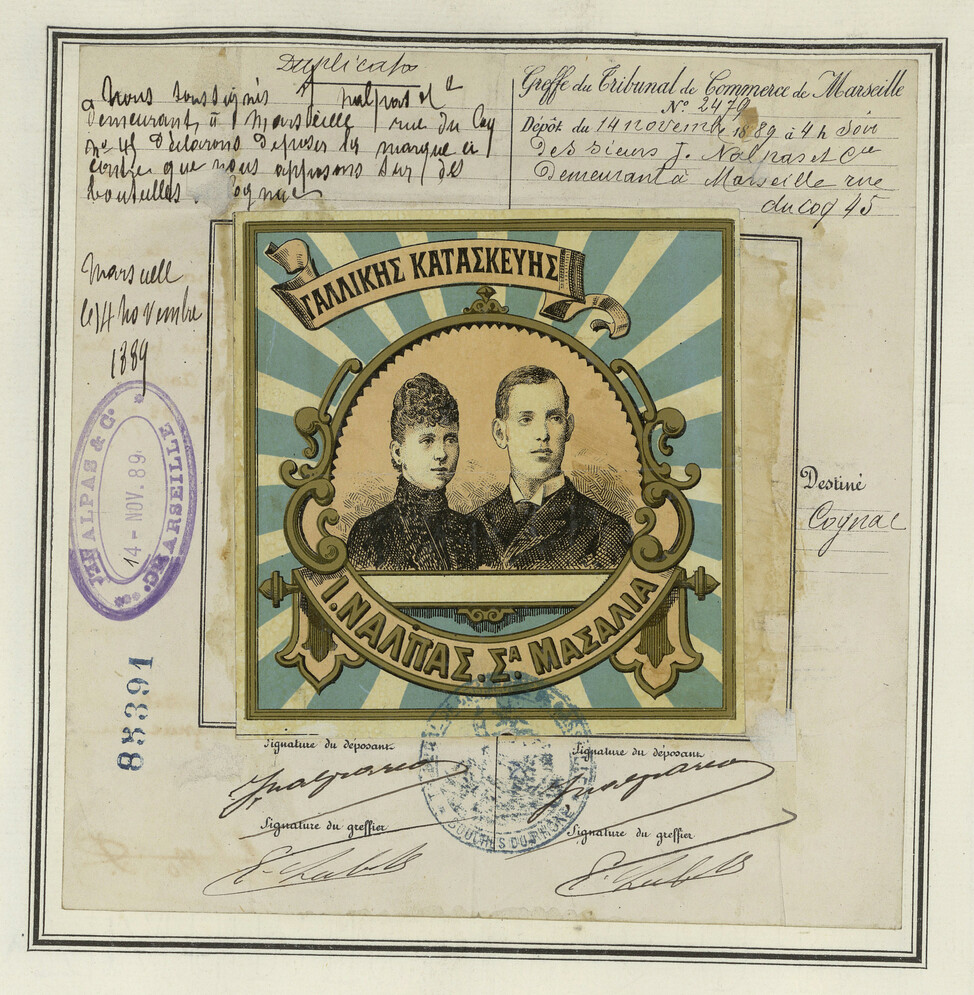 Duplicata
Nous soussignés J. Nalpas et Cie
demeurant à Marseille rue du Coq
no 45 Déclarons Déposer la marque ci
contre que nous apposons sur des
bouteilles Cognac
Greffe du Tribunal de Commerce de Marseille
No 2479
Dépôt du 14 novembre 1889 à 4 h Soir
Des Sieurs J. Nalpas et Cie
Demeurant à Marseille rue
du Coq 45
Marseille
le 14 Novembre
1889
J. NALPAS & Co.
14 - NOV. 89
MARSEILLE
88391
ΓΑΛΛΙΚΗΣ ΚΑΤΑΣΚΕΥΗΣ
Ι. ΝΑΛΠΑΣ. Σα ΜΑΣΑΛΙΑ
Destiné
Cognac
Signature du déposant
Signature du déposant
JNalpas & Co
JNalpas & Co
BOUCHES DU RHONE
Signature du greffier
Signature du greffier